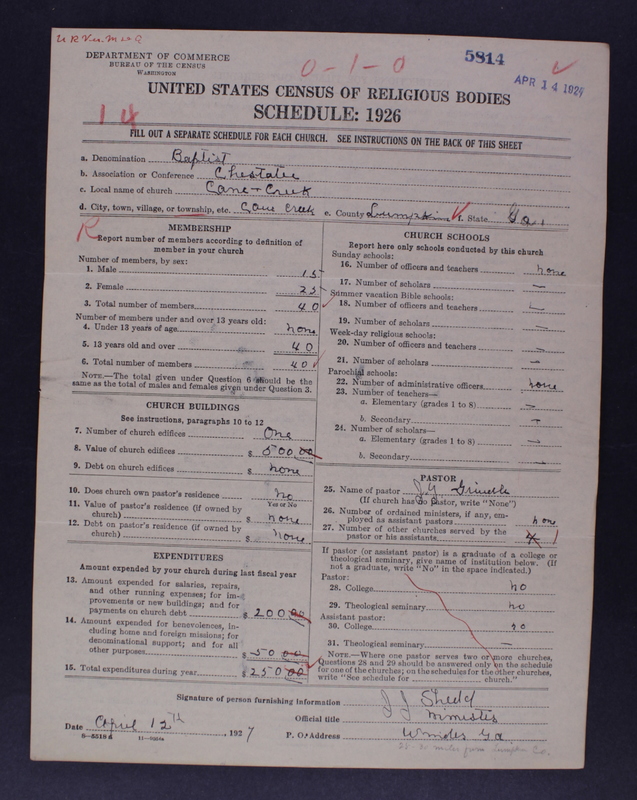 DEPARTMENT OF COMMERCE
BUREAU OF THE CENSUS
WASHINGTON
0-1-0
5814
APR 14 1927
UNITED STATES CENSUS OF RELIGIOUS BODIES
SCHEDULE: 1926
14
FILL OUT A SEPARATE SCHEDULE FOR EACH CHURCH. SEE INSTRUCTIONS ON THE BACK OF THIS SHEET
a. Denomination Baptist
b. Association or Conference Chestatee
c. Local name of church Cane Creek
d. City, town, village, or township, etc. Cane Creek e. County Lumpkin f. State Ga.
R
MEMBERSHIP
Report number of members according to definition of
member in your church
Number of members, by sex:
1. Male 15
2. Female 25
3. Total number of members 40
Number of members under and over 13 years old:
4. Under 13 years of age none
5. 13 years old and over 40
6. Total number of members 40
NOTE.—The total given under Question 6 should be the
same as the total of males and females given under Question 3.
CHURCH BUILDINGS
See instructions, paragraphs 10 to 12
7. Number of church edifices One
8. Value of church edifices $ 500 00
9. Debt on church edifices $ none
10. Does church own pastor's residence No
Yes or No
11. Value of pastor's residence (if owned by
church) $ none
12. Debt on pastor's residence (if owned by
church) $ none
EXPENDITURES
Amount expended by your church during last fiscal year
13. Amount expended for salaries, repairs,
and other running expenses; for im-
provements or new buildings; and for
payments on church debt $ 200 00
14. Amount expended for benevolences, in-
cluding home and foreign missions; for
denominational support; and for all
other purposes $ 50 00
15. Total expenditures during year $ 250 00
CHURCH SCHOOLS
Report here only schools conducted by this church
Sunday schools:
16. Number of officers and teachers none
17. Number of scholars —
Summer vacation Bible schools:
18. Number of officers and teachers —
19. Number of scholars —
Week-day religious schools:
20. Number of officers and teachers —
21. Number of scholars —
Parochial schools:
22. Number of administrative officers none
23. Number of teachers—
a. Elementary (grades 1 to 8) —
b. Secondary —
24. Number of scholars—
a. Elementary (grades 1 to 8) —
b. Secondary —
PASTOR
25. Name of pastor Grindle
(If church has no pastor, write "None")
26. Number of ordained ministers, if any, em-
ployed as assistant pastors none
27. Number of other churches served by the
pastor or his assistants 4 1
If pastor (or assistant pastor) is a graduate of a college or
theological seminary, give name of institution below. (If
not a graduate, write "No" in the space indicated.)
Pastor:
28. College no
29. Theological seminary no
Assistant pastor:
30. College no
31. Theological seminary —
NOTE.—Where one pastor serves two or more churches,
Questions 28 and 29 should be answered only on the schedule
for one of the churches; on the schedules for the other churches,
write "See schedule for church."
Signature of person furnishing information
Official title Minister
Date April 12th, 1927 P. O. Address Ga
8—5518a 11—9066a